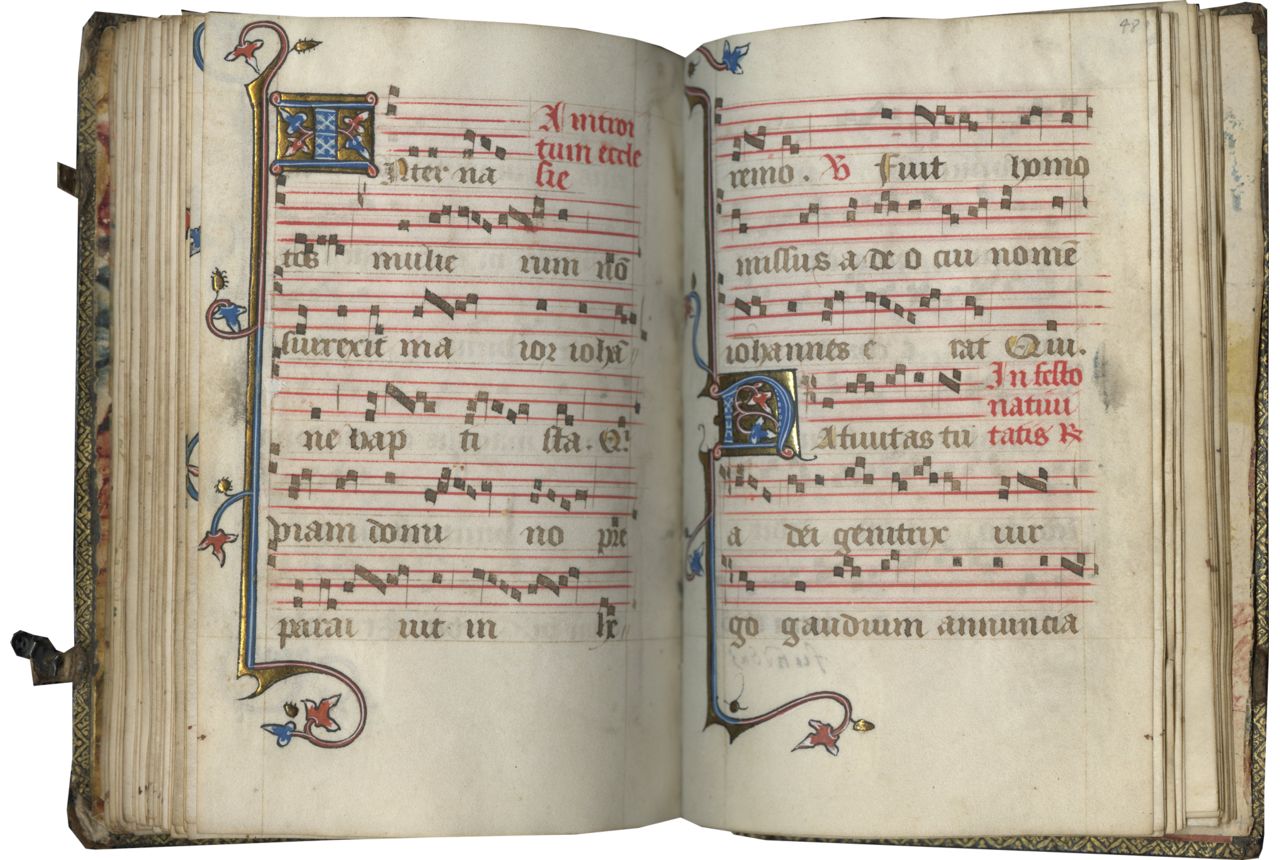 A introi
tum eccle
sie
INter na
tos mulie rum nō
surrexit ma ior iohā
ne bap ti sta. Qⁱ
viam domi no pre
parau iut in he
48
remo. V Fuit homo
missus a deo cui nomē
iohannes e rat Qui.
In festo
natiui
tatis R
NAtiuitas tu
a dei genitrix uir
go gaudium annuncia